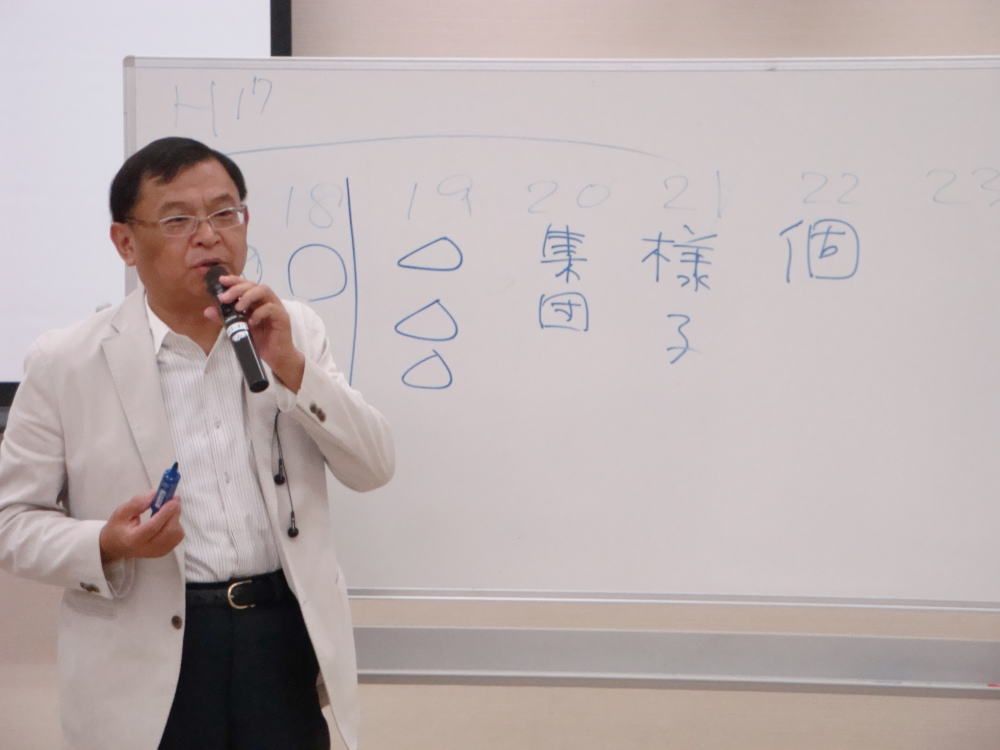 H17
18 19 20 21 22 23
集 様 個
団 子